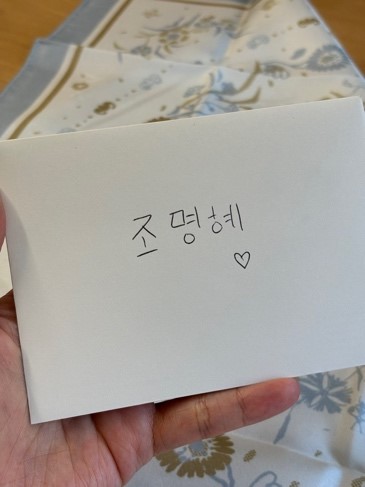 조명혜
♡